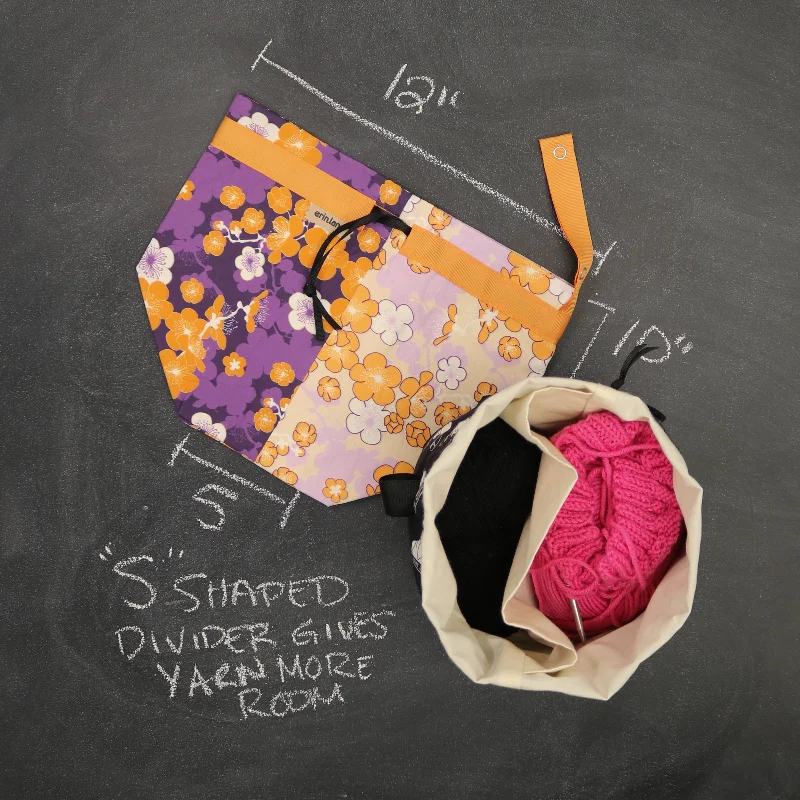 12"
erin.lan
10"
5"
"S" SHAPED
DIVIDER GIVES
YARN MORE
ROOM